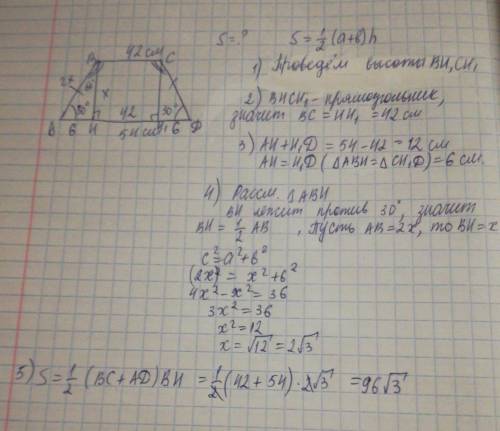 42 см
S=? S=½(a+b)h
B C
2x x
30° 30°
A 6 H 42 H₁ 6 D
54 см
1) Проведём высоты BH, CH₁
2) BHCH₁ - прямоугольник,
значит BC = HH₁ = 42 см
3) AH + H₁D = 54 - 42 = 12 см
AH = H₁D (△ABH = △CH₁D) = 6 см.
4) Рассм. △ABH
BH лежит против 30°, значит
BH = ½ AB , Пусть AB = 2x, то BH = x
c² = a² + b²
(2x)² = x² + 6²
4x² - x² = 36
3x² = 36
x² = 12
x = √12 = 2√3
5) S = ½ (BC + AD) BH = ½ (42 + 54) · 2√3 = 96√3